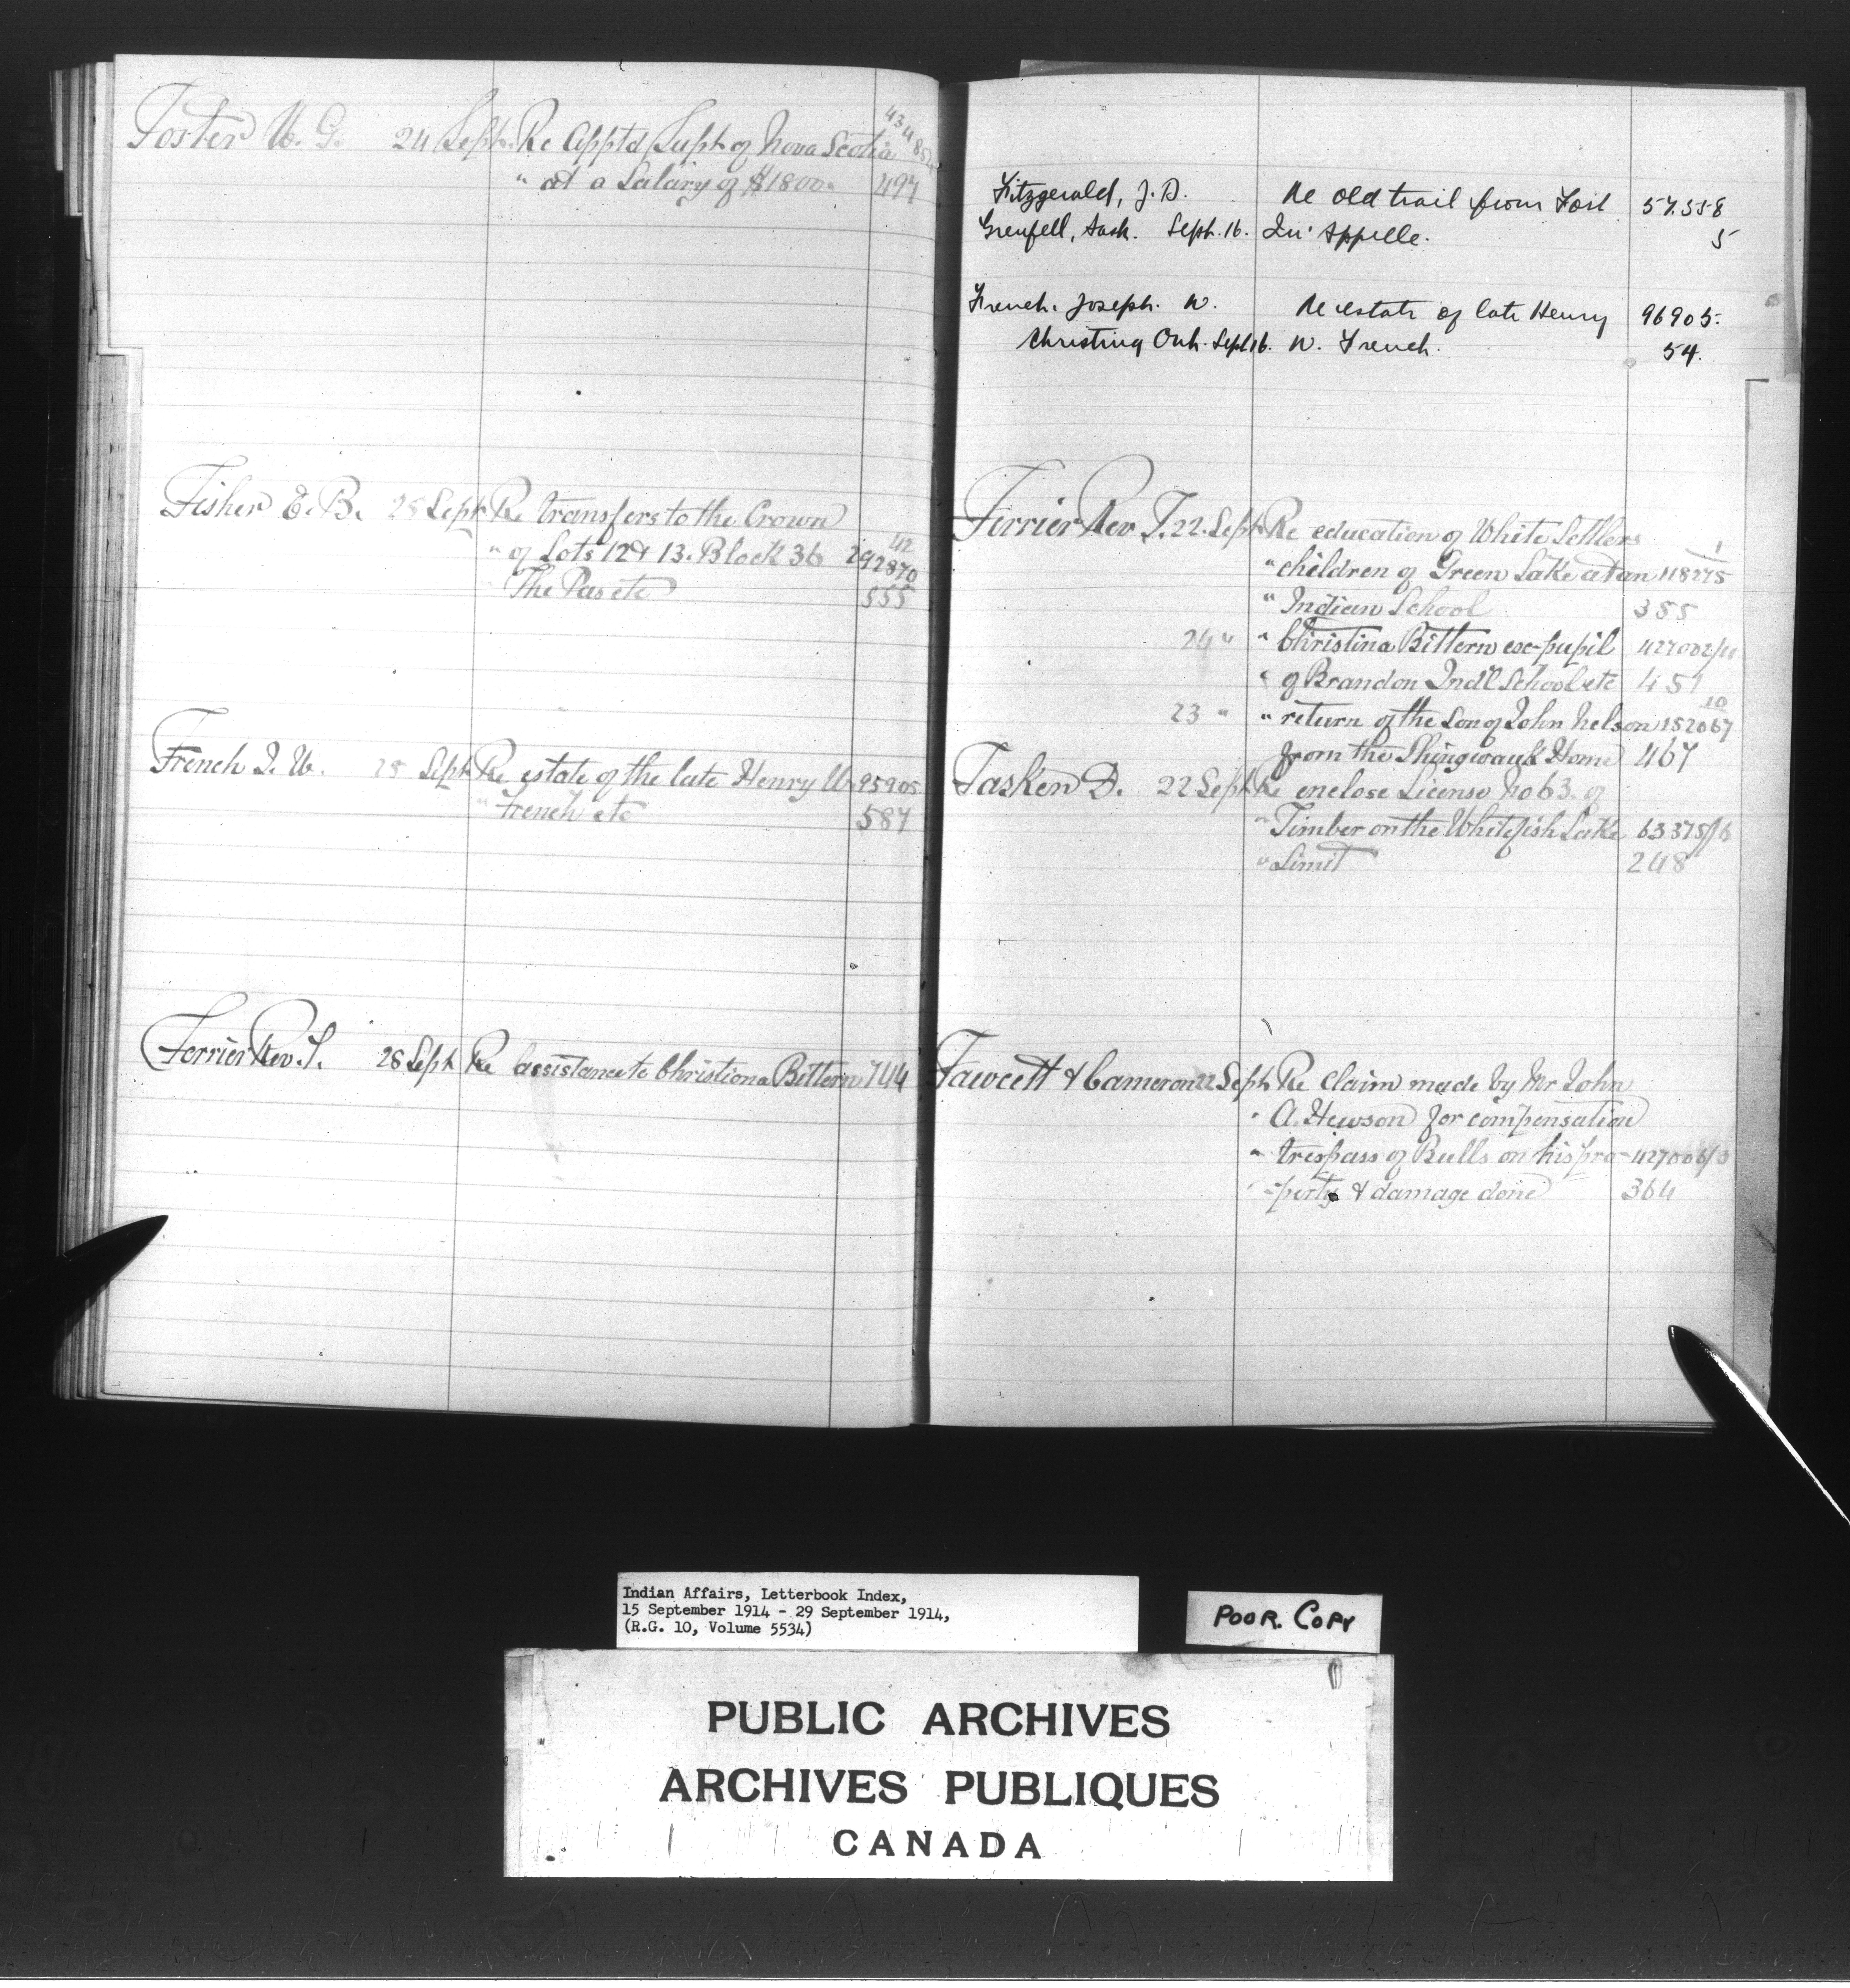 Foster W. G. 24 Sept. Re Appt'd Supt of Nova Scotia 434854
" at a Salary of $1800. 497
Fisher E. B. 25 Sept Re transfers to the Crown
" of Lots 12 & 13. Block 36 292870 42
" The Pas etc 555
French J. W. 25 Sept Re estate of the late Henry W. 95905
" French etc 587
Ferrier Rev. T. 28 Sept Re assistance to Christiona Bittern 744
Fitzgerald, J. D. Re old trail from Fort 57.558
Grenfell, Sask. Sept. 16. Qu'Appelle. 5
French. Joseph. W. Re estate of late Henry 96905.
Christina Ont. Sept 16. W. French. 54.
Ferrier Rev T. 22. Sept Re education of White Settlers
" children of Green Lake at an 118275 1
" Indian School 355
24 " " Christina Bittern ex-pupil 427002/11
" of Brandon Ind'l School etc 451
23 " " return of the Son of John Nelson 152067 10
from the Shingwauk Home 467
Fasken D. 22 Sept Re enclose License No 63. of
" Timber on the Whitefish Lake 63375/6
" Limit 248
Fawcett & Cameron 22 Sept Re claim made by Mr John
" A. Hewson for compensation
" trespass of Bulls on his pro- 427006/3
" -perty & damage done 364
Indian Affairs, Letterbook Index,
15 September 1914 - 29 September 1914,
(R.G. 10, Volume 5534)
POOR. COPY
PUBLIC ARCHIVES
ARCHIVES PUBLIQUES
CANADA